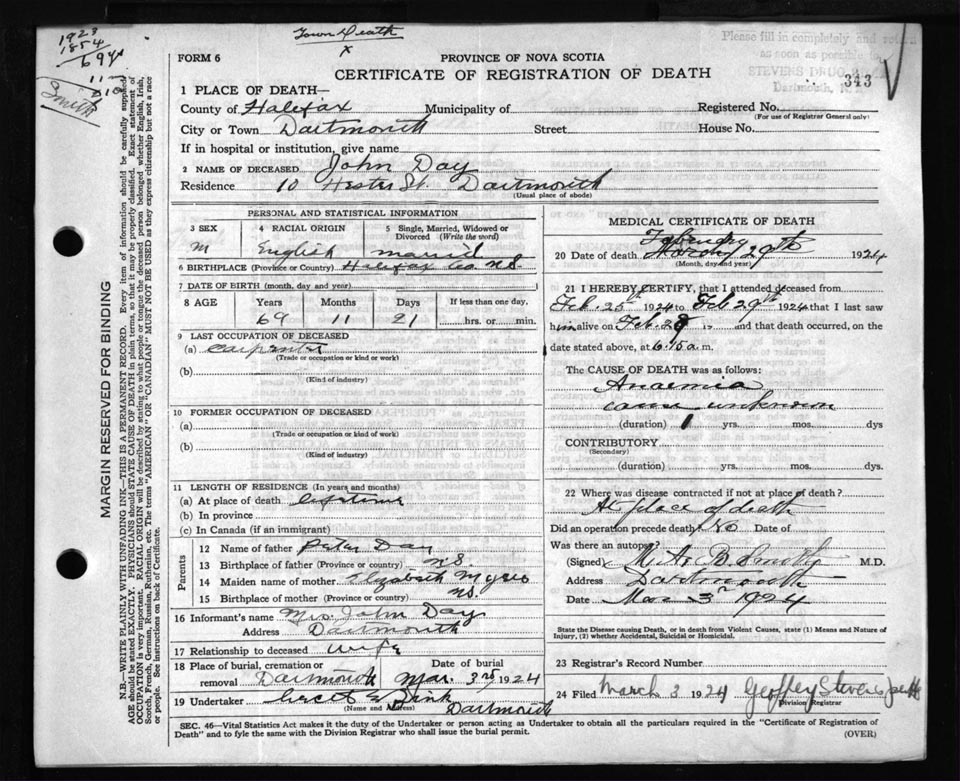 1923
1854
69
Town Death
x
Please fill in completely and return
as soon as possible to
STEVENS DRUG
Dartmouth, N.S.
343
Smith
FORM 6
PROVINCE OF NOVA SCOTIA
CERTIFICATE OF REGISTRATION OF DEATH
1 PLACE OF DEATH—
County of Halifax Municipality of Registered No.
(For use of Registrar General only)
City or Town Dartmouth Street House No.
If in hospital or institution, give name
2 NAME OF DECEASED John Day
Residence 10 Hester St. Dartmouth
(Usual place of abode)
PERSONAL AND STATISTICAL INFORMATION
3 SEX 4 RACIAL ORIGIN 5 Single, Married, Widowed or Divorced (Write the word)
M English married
6 BIRTHPLACE (Province or Country) Halifax Co N.S.
7 DATE OF BIRTH (month, day and year)
8 AGE Years Months Days If less than one day,
69 11 21 hrs. or min.
9 LAST OCCUPATION OF DECEASED
(a) carpenter
(Trade or occupation or kind or work)
(b)
(Kind of industry)
10 FORMER OCCUPATION OF DECEASED
(a)
(Trade or occupation or kind of work)
(b)
(Kind of industry)
11 LENGTH OF RESIDENCE (In years and months)
(a) At place of death lifetime
(b) In province
(c) In Canada (if an immigrant)
Parents
12 Name of father Peter Day
13 Birthplace of father (Province or country) N.S.
14 Maiden name of mother Elizabeth Myers
15 Birthplace of mother (Province or country) N.S.
16 Informant's name Mrs John Day
Address Dartmouth
17 Relationship to deceased wife
18 Place of burial, cremation or removal Dartmouth Date of burial Mar. 3rd 1924
19 Undertaker Zink
(Name and Address) Dartmouth
MEDICAL CERTIFICATE OF DEATH
February
20 Date of death March 29th 1924
(Month, day and year)
21 I HEREBY CERTIFY, that I attended deceased from
Feb. 25th 1924 to Feb 29th 1924 that I last saw
him alive on Feb. 28 19 and that death occurred, on the
date stated above, at 6.15 a.m.
The CAUSE OF DEATH was as follows:
Anaemia
cause unknown
(duration) 1 yrs. mos. dys
CONTRIBUTORY
(Secondary)
(duration) yrs. mos. dys.
22 Where was disease contracted if not at place of death?
At place of death
Did an operation precede death? No Date of
Was there an autopsy?
(Signed) M. A. B. Smith M.D.
Address Dartmouth
Date Mar 3rd 1924
State the Disease causing Death, or in death from Violent Causes, state (1) Means and Nature of
Injury, (2) whether Accidental, Suicidal or Homicidal.
23 Registrar's Record Number
24 Filed March 3 1924 Geoffrey Stevens
Division Registrar
SEC. 46—Vital Statistics Act makes it the duty of the Undertaker or person acting as Undertaker to obtain all the particulars required in the "Certificate of Registration of
Death" and to fyle the same with the Division Registrar who shall issue the burial permit.
(OVER)
MARGIN RESERVED FOR BINDING
N.B.—WRITE PLAINLY WITH UNFADING INK—THIS IS A PERMANENT RECORD. Every item of information should be carefully supplied.
AGE should be stated EXACTLY. PHYSICIANS should STATE CAUSE OF DEATH in plain terms, so that it may be properly classified. Exact statement of
OCCUPATION is very important. RACIAL ORIGIN will be described by stating to what people or tongue the deceased person belonged whether English, Irish,
Scotch, French, German, Russian, Ruthenian, etc. The terms "AMERICAN" OR "CANADIAN" MUST NOT BE USED as they express citizenship but not a race
or people. See instructions on back of Certificate.